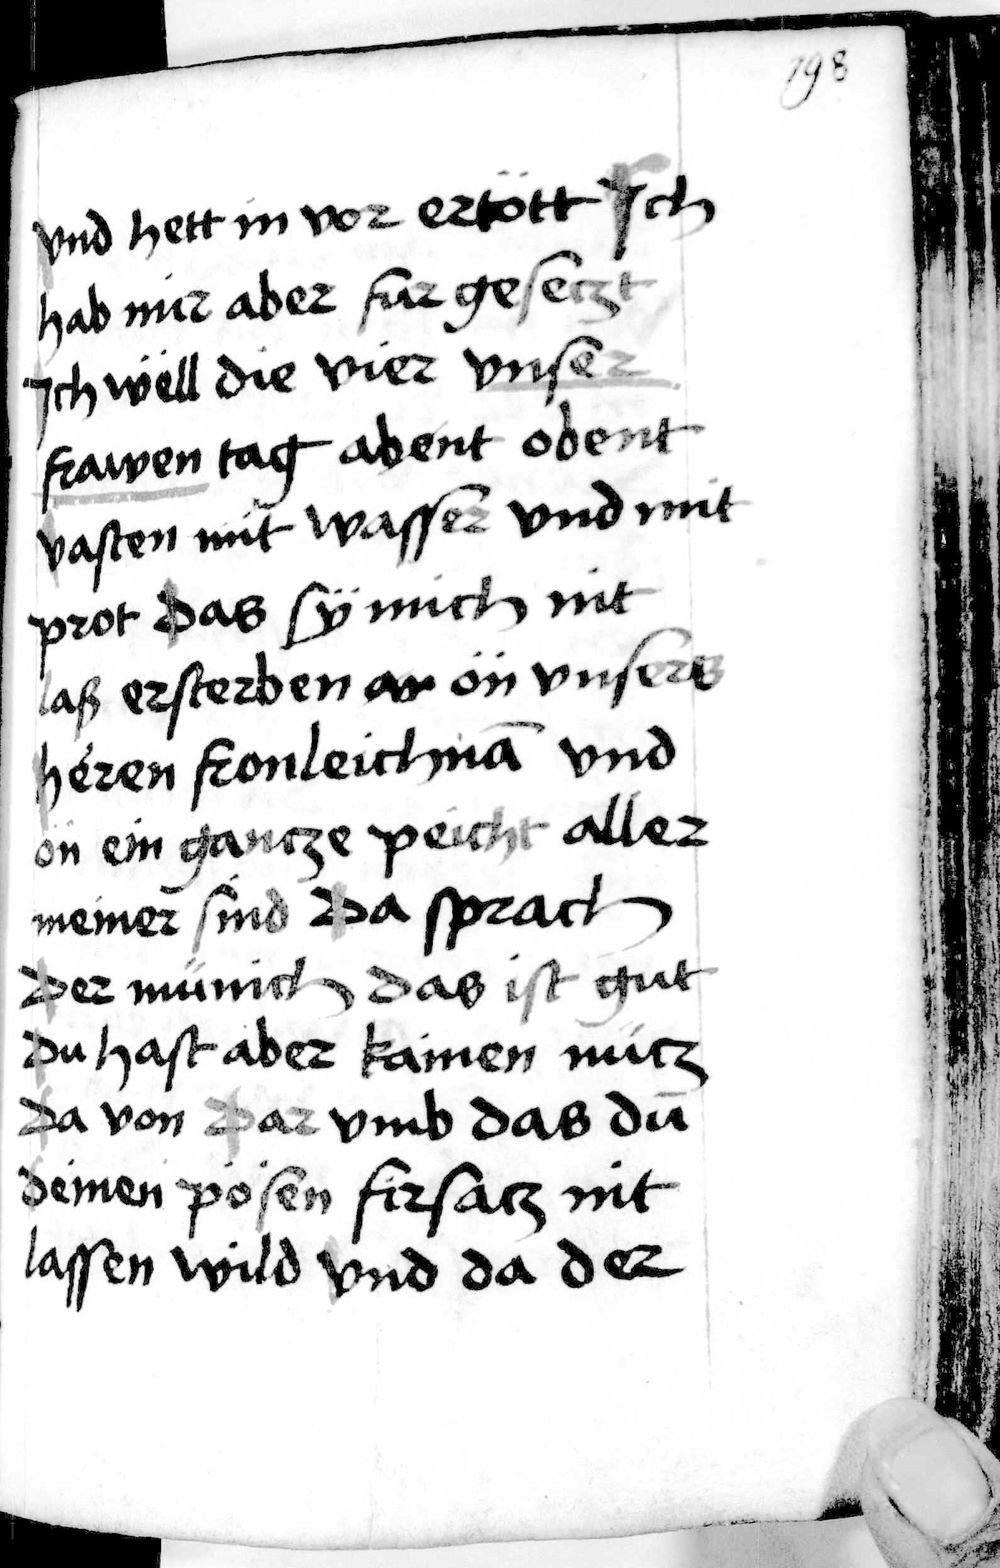 198
vnd hett in vor ertött Ich
hab mir aber für geseczt
Ich wëll die vier vnser
frawen tag abent obent
vasten mit wasser vnd mit
prot Das sÿ mich nit
laß ersterben ar ön vnsers
heren fronleichnā vnd
ön ein gancze peicht aller
meiner sind Da sprach
Der münich das ist gut
Du hast aber kainen nücz
Da von Dar vmb das dū
deinen posen firsacz nit
lassen wild vnd da der